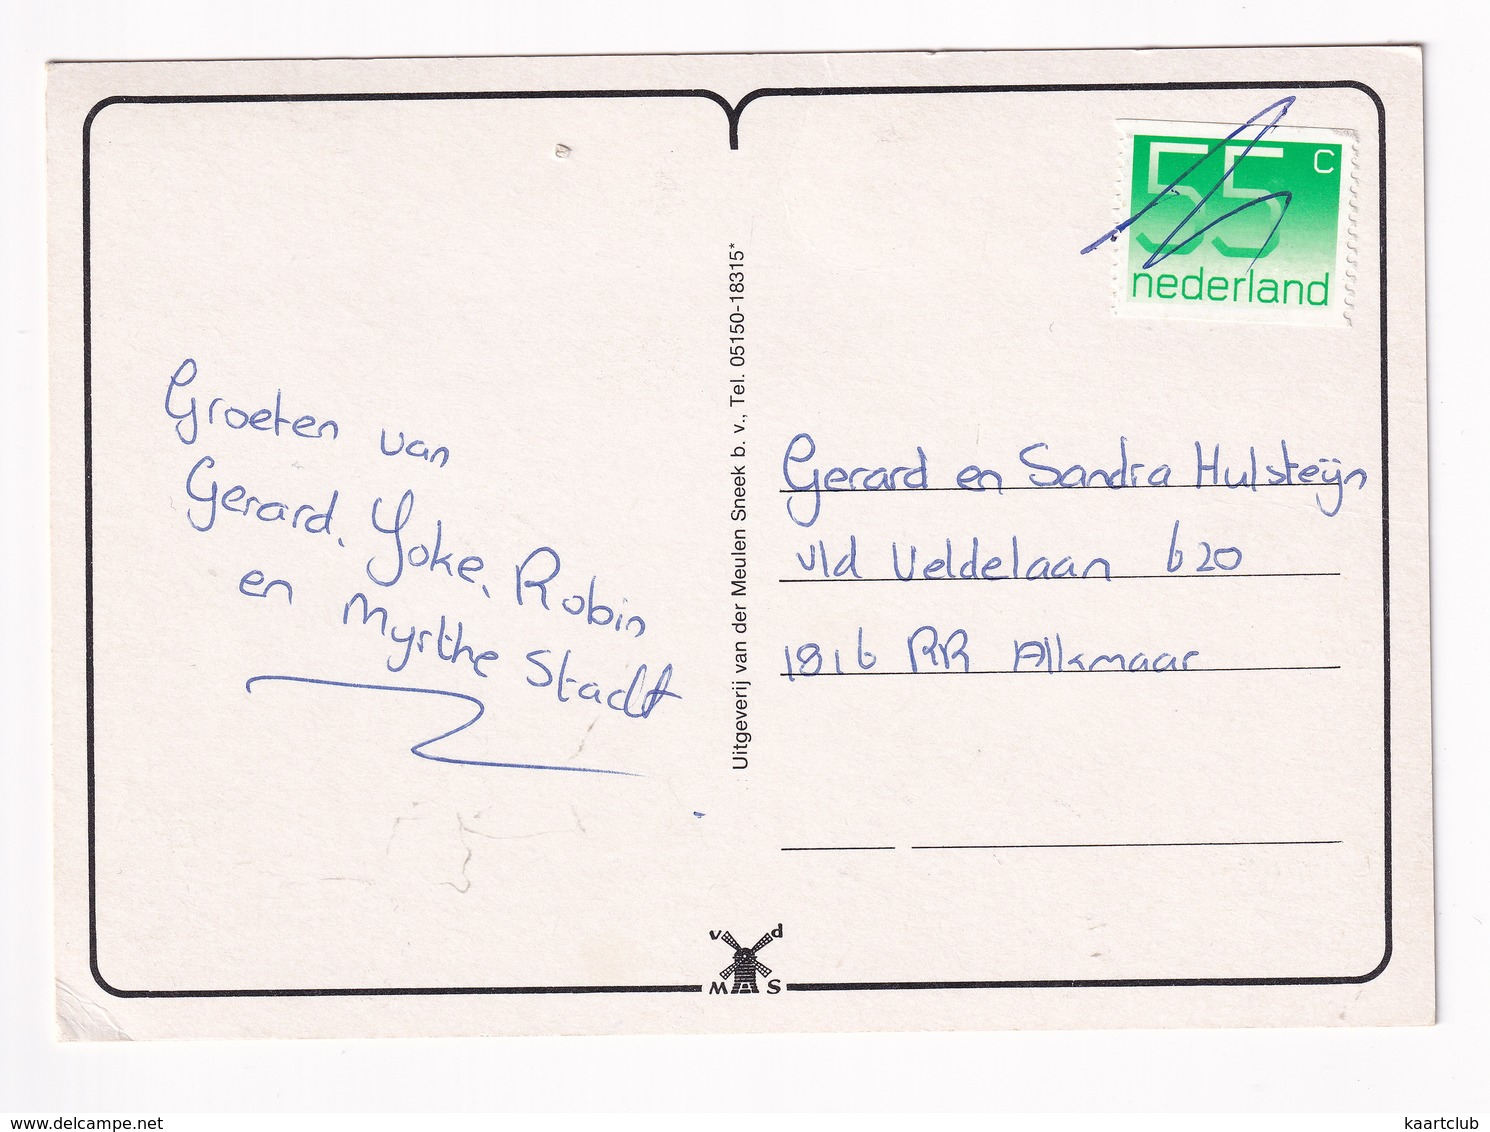 55 c
nederland
Groeten van
Gerard, Yoke, Robin
en Myrthe Stadt
Uitgeverij van der Meulen Sneek b. v., Tel. 05150-18315*
Gerard en Sandra Hulsteijn
v/d Veldelaan 620
1816 RR Alkmaar
v d
M S
delcampe.net
kaartclub